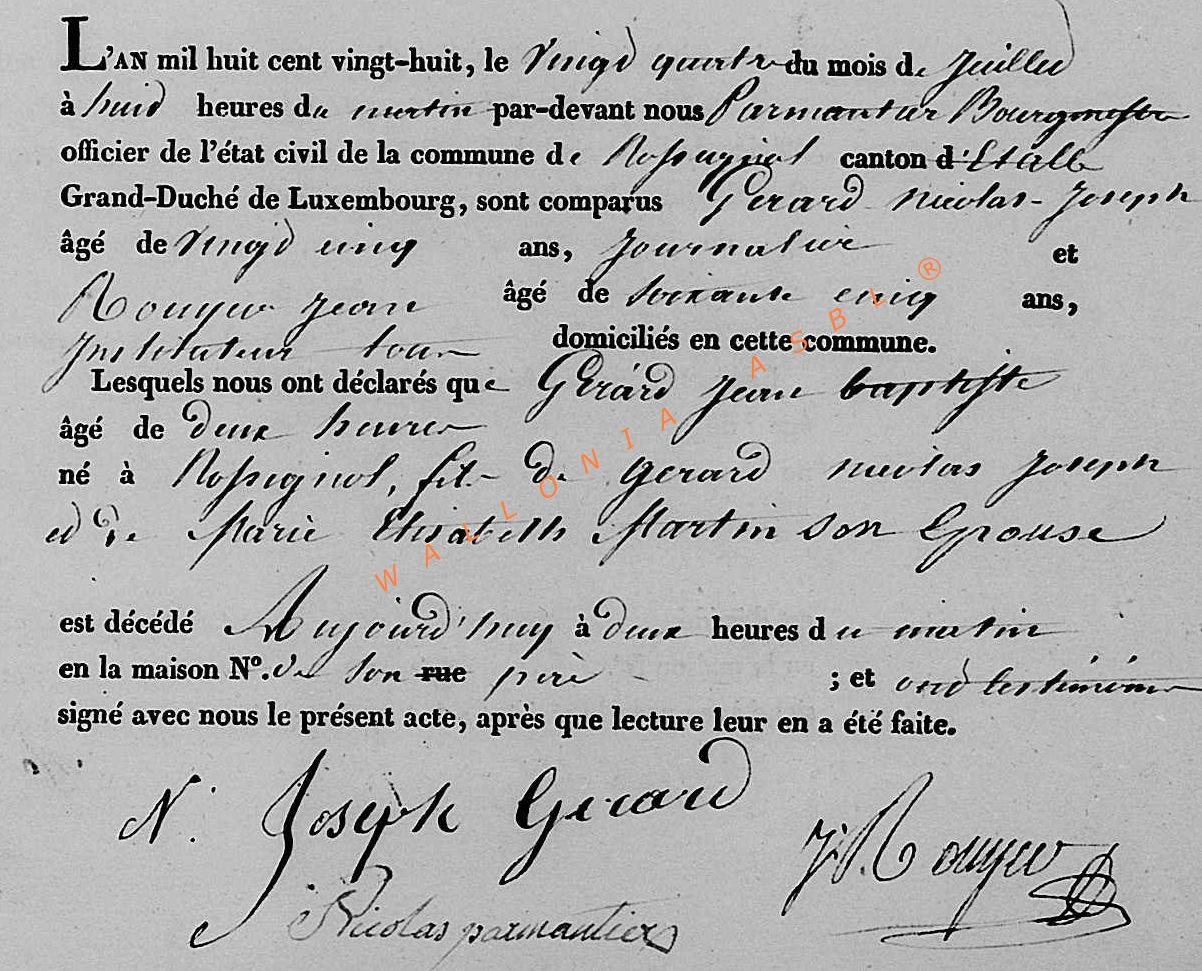 L'AN mil huit cent vingt-huit, le Vingt quatre du mois de Juillet
à huit heures du matin par-devant nous Parmantier Bourgmestre
officier de l'état civil de la commune de Rossignol canton d'Etalle
Grand-Duché de Luxembourg, sont comparus Gerard nicolas-Joseph
âgé de vingt cinq ans, Journalier et
Rouyer Jean âgé de Soixante cinq ans,
Instituteur tous domiciliés en cette commune.
Lesquels nous ont déclarés que Gérard Jean baptiste
âgé de deux heures
né à Rossignol, fils de Gerard nicolas Joseph
et de Marie Elisabeth Martin son Epouse
est décédé Aujourd'huy à deux heures du matin
en la maison N°. de son rue père ; et ont les témoins
signé avec nous le présent acte, après que lecture leur en a été faite.
N. Joseph Gerard
J. Rouyer
Nicolas parmantier
WALLONIA ASBL ®